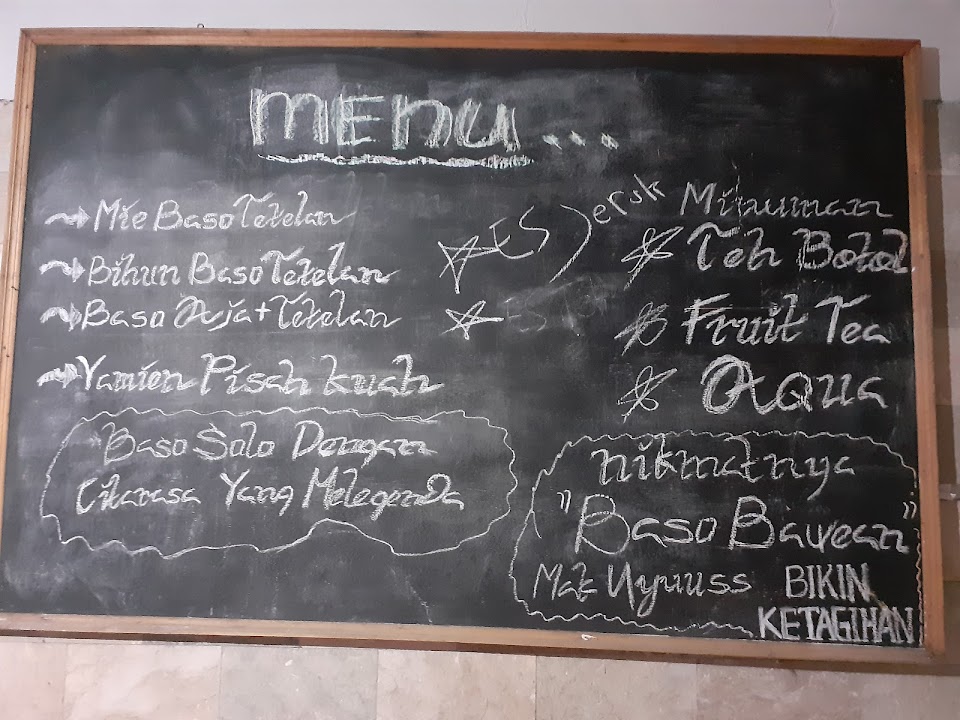 MENU...
Mie Baso Tetelan
Bihun Baso Tetelan
Baso Aja + Tetelan
Yamien Pisah kuah
Baso Solo Dengan
Citarasa Yang Melegenda
ES Jeruk
Es
Minuman
Teh Botol
Fruit Tea
AQUA
nikmatnya
"Baso Bawean"
Mak Nyuuss BIKIN
KETAGIHAN